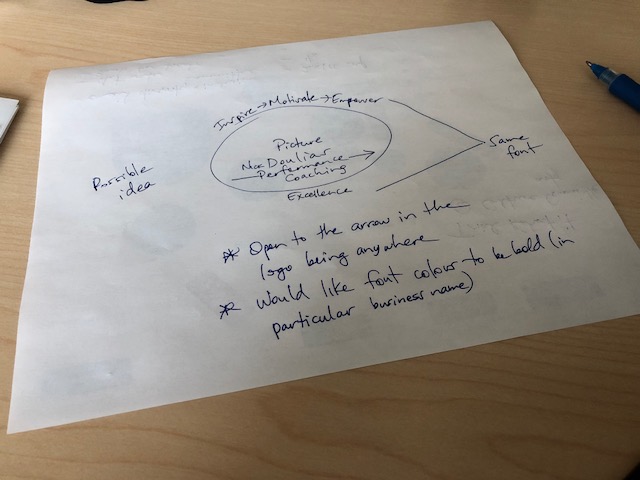 Inspire → Motivate → Empower
Picture
MacDouliar
Performance
Coaching
Excellence
Possible
idea
Same
font
* Open to the arrow in the
logo being anywhere
* Would like font colour to be bold (in
particular business name)